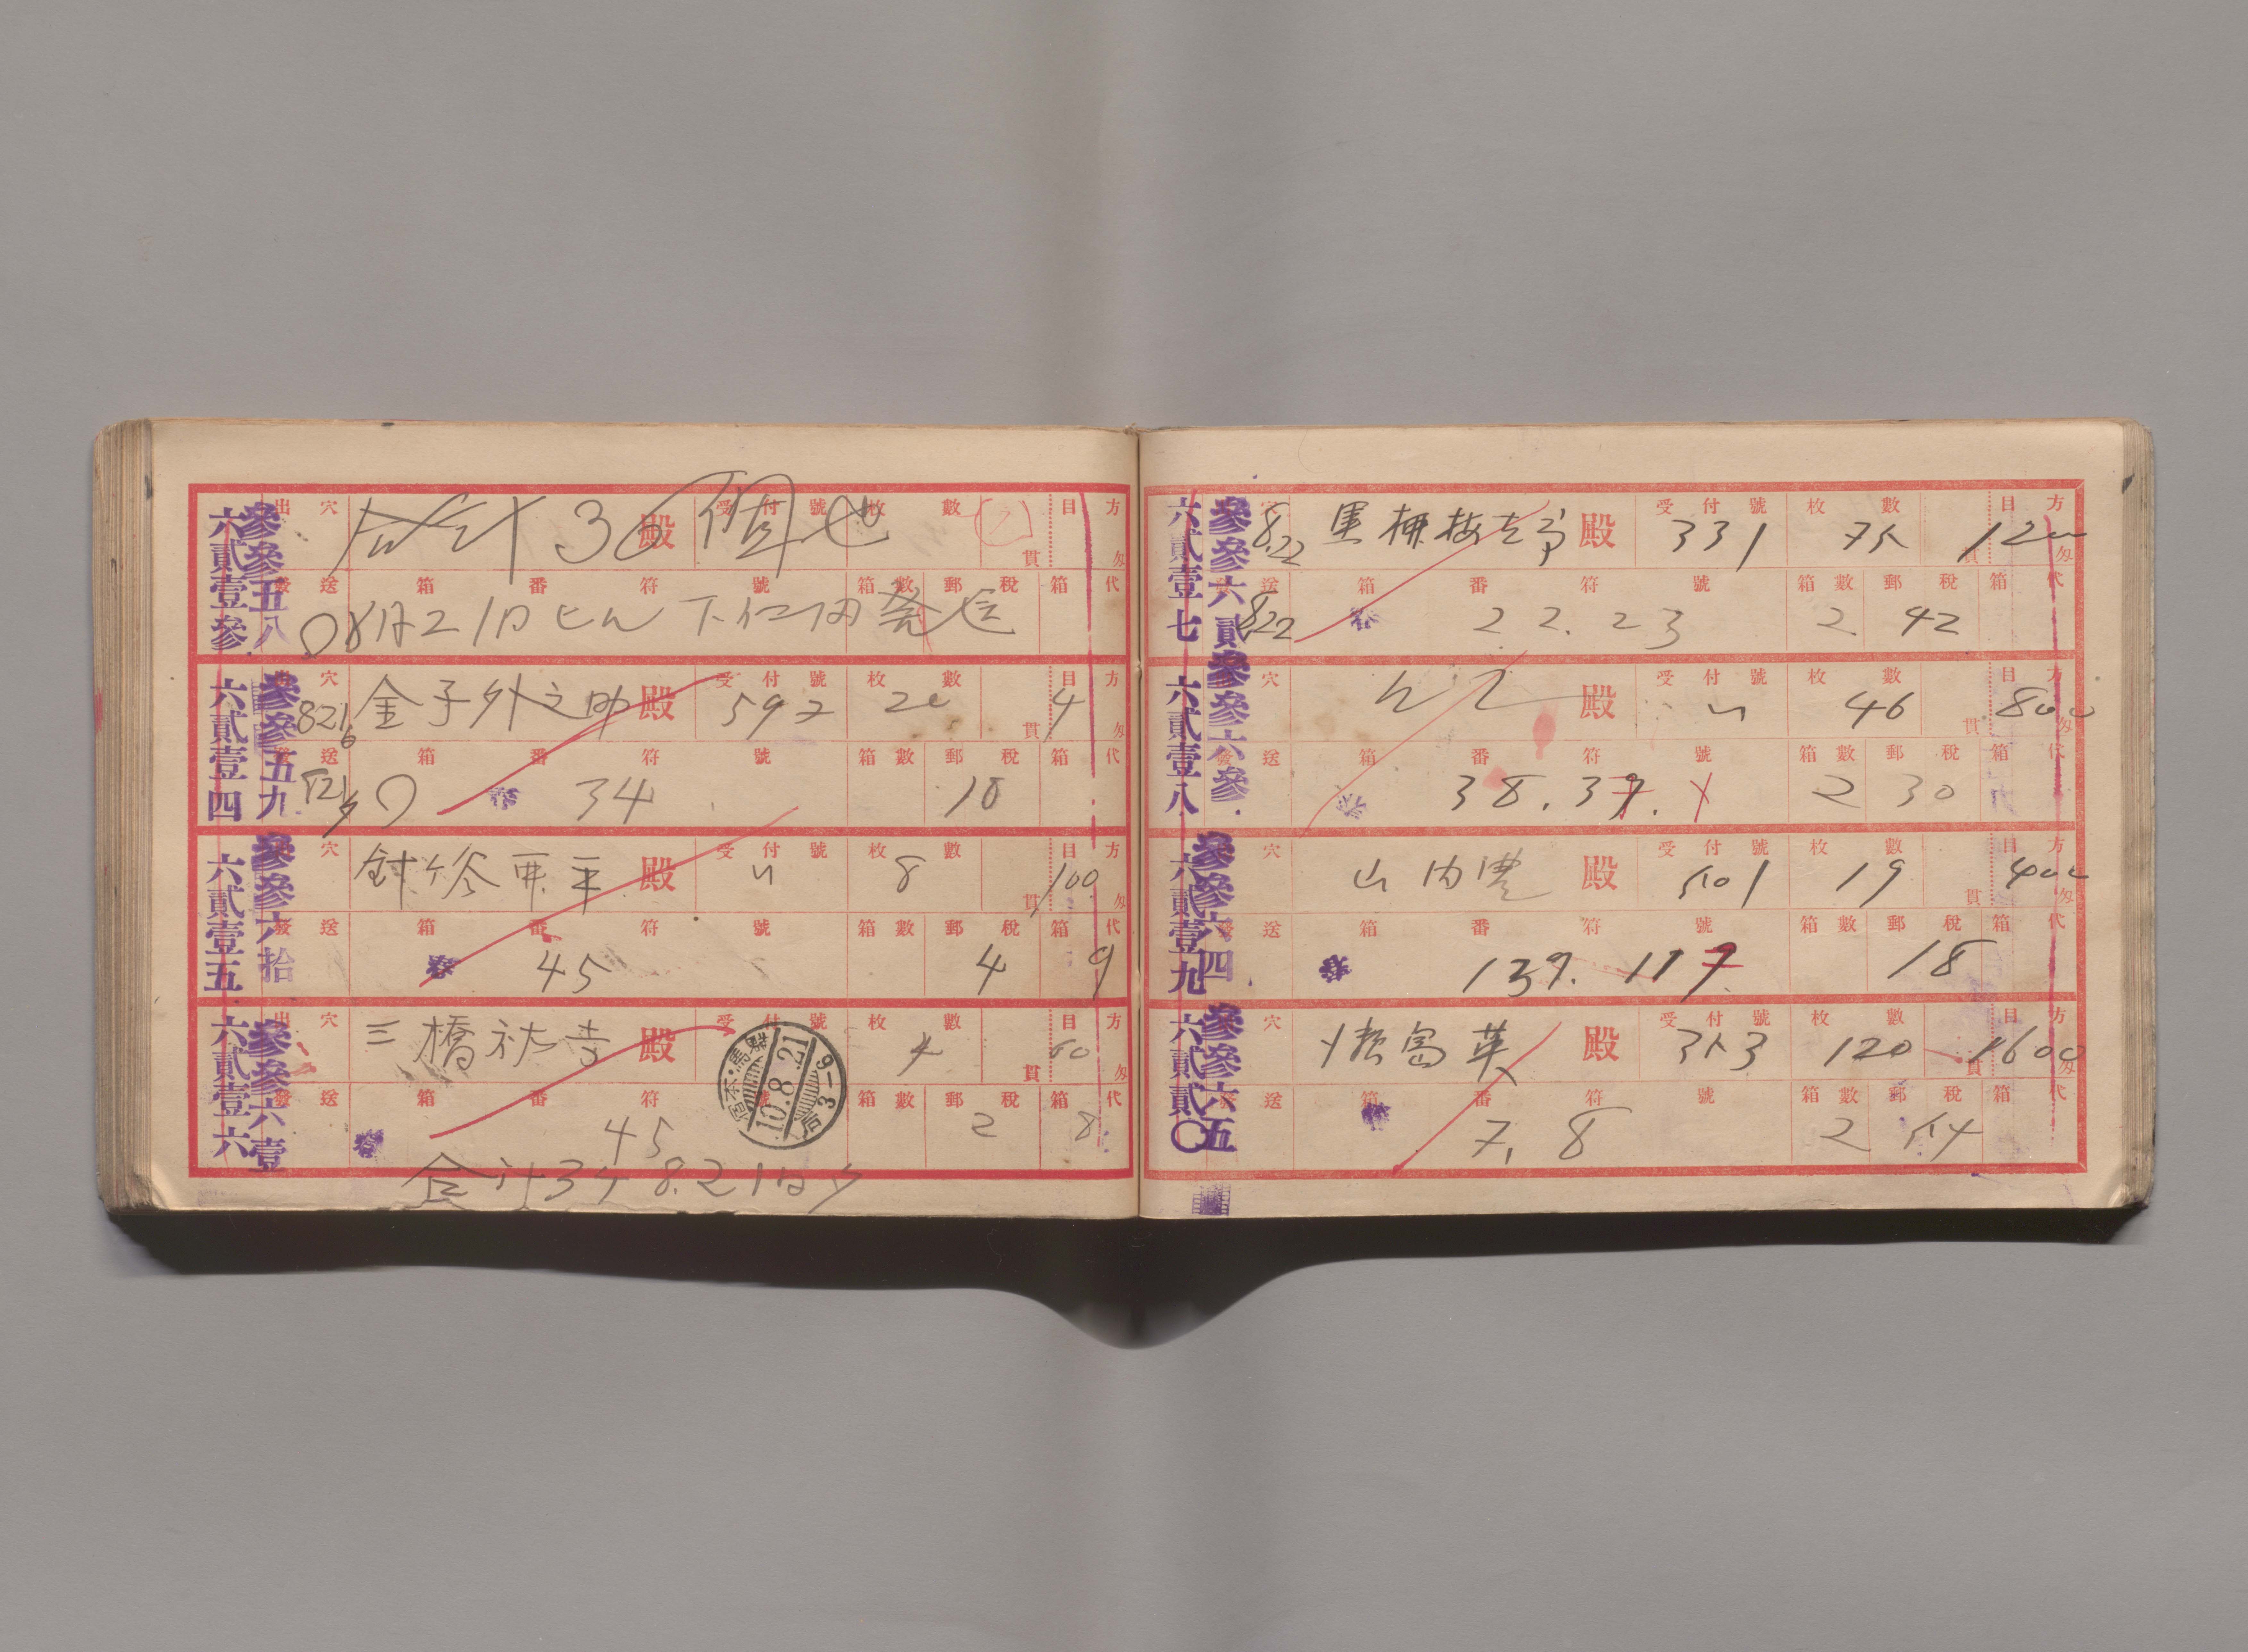 六貳壹參 參參五八
出穴 合計30個也 殿 受付號 枚數 貫 目方 匁
發送 箱番符號 箱數 郵稅 箱代
8月21日 下仁田発送
六貳壹四 參參五九
出穴 821 6 金子外之助 殿 受付號 592 枚數 20 貫 目方 4 匁
發送 821 箱番符號 春 34 箱數 郵稅 10 箱代
六貳壹五 參參六拾
穴 殿 受付號 〃 枚數 8 貫 目方 100 匁
發送 箱番符號 春 45 箱數 郵稅 4 箱代 9
六貳壹六 參參六壹
出穴 三橋 殿 受付號 枚數 4 貫 目方 60 匁
發送 箱番符號 春 45 箱數 郵稅 2 箱代 8
群馬・本宿 10.8.21 后3-9
合計34 8.21日
六貳壹七 參參六貳
穴 8.22 殿 受付號 331 枚數 75 貫 目方 1200 匁
發送 822 箱番符號 春 22.23 箱數 2 郵稅 42 箱代
六貳壹八 參參六參
穴 殿 受付號 〃 枚數 46 貫 目方 800 匁
發送 箱番符號 春 38.39. 箱數 2 郵稅 30 箱代
六貳壹九 參參六四
穴 山内豊 殿 受付號 501 枚數 19 貫 目方 400 匁
發送 箱番符號 春 139. 117 箱數 郵稅 18 箱代
六貳貳〇 參參六五
穴 殿 受付號 353 枚數 120 貫 目方 1600 匁
發送 箱番符號 春 7, 8 箱數 2 郵稅 54 箱代